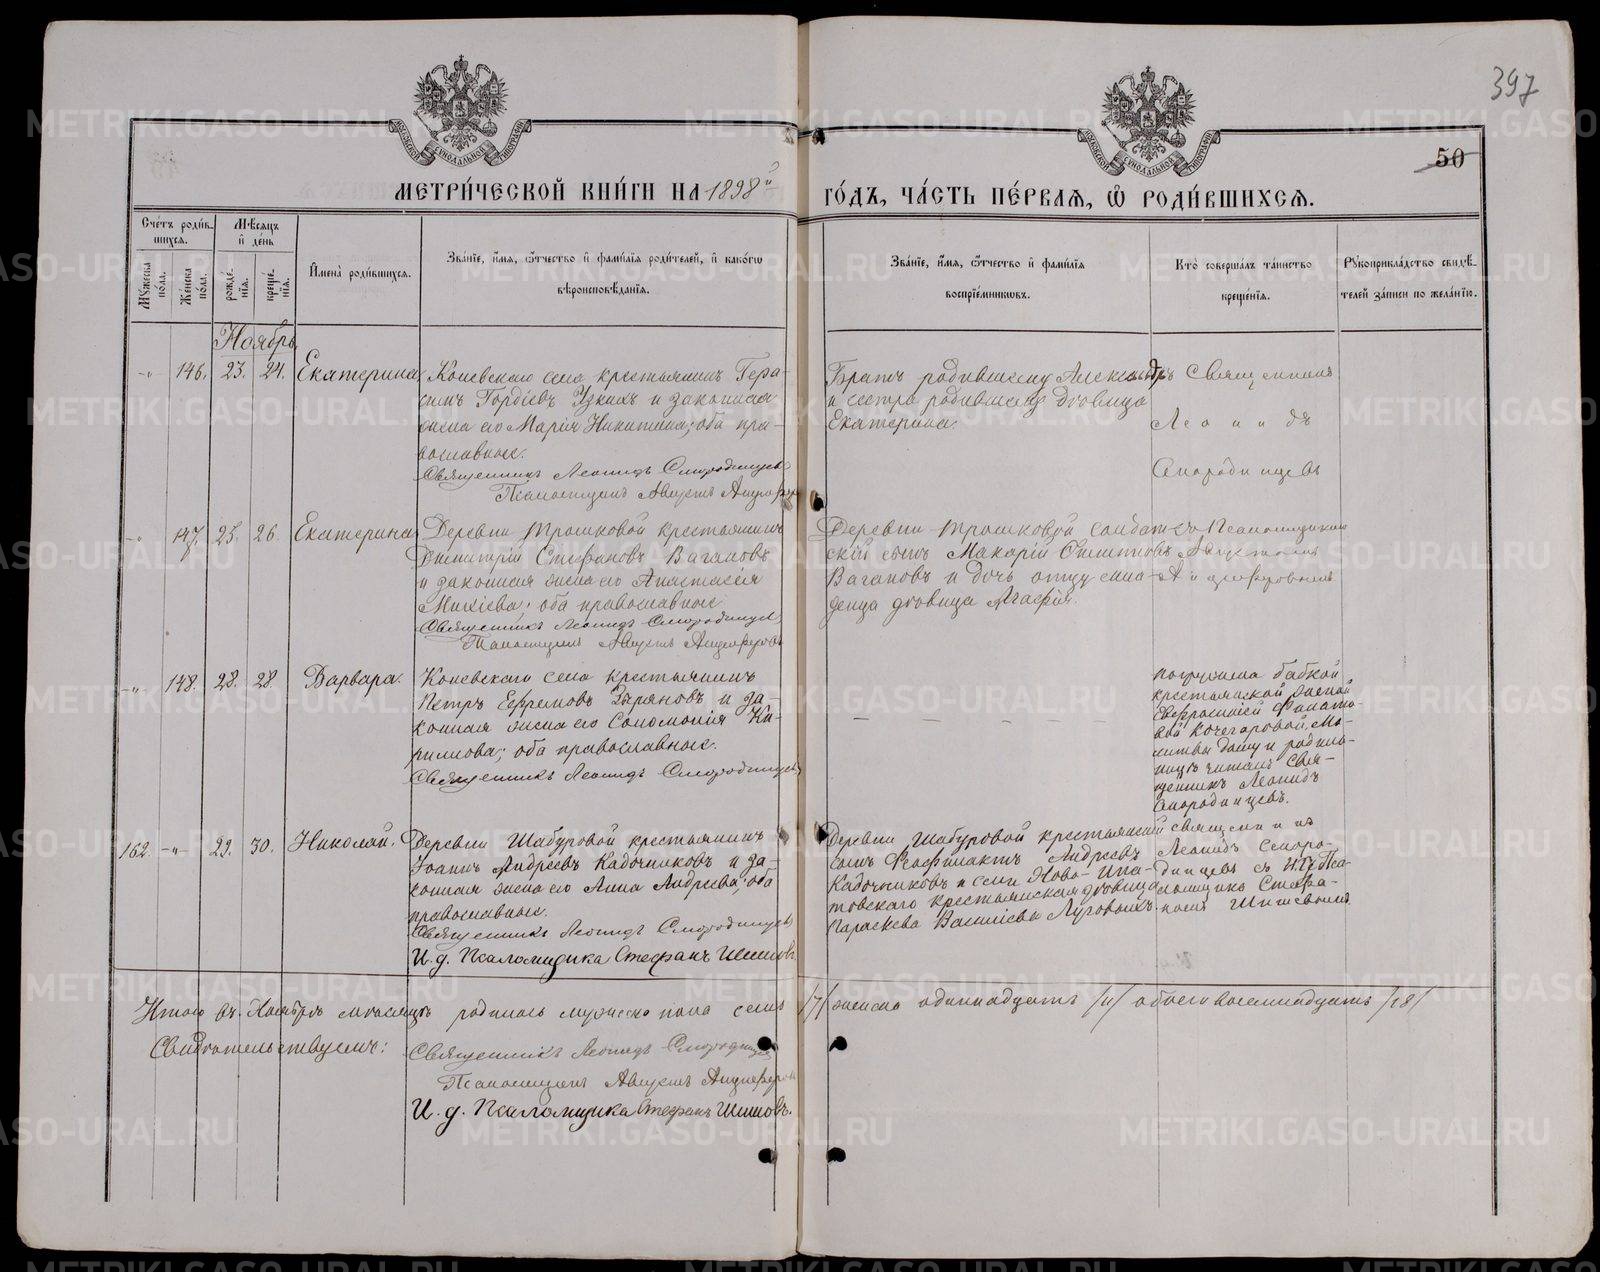 397
50
МОСКОВСКОЙ СУНОДАЛЬНОЙ ТИПОГРАФІИ
МОСКОВСКОЙ СУНОДАЛЬНОЙ ТИПОГРАФІИ
МЕТРИ́ЧЕСКОЙ КНИ́ГИ НА 1898й ГО́ДЪ, ЧА́СТЬ ПЕ́РВАѦ, Ѽ РОДИ́ВШИХСѦ.
Сче́тъ роди́вшихсѧ.
Мꙋ́жеска по́ла.
Же́нска по́ла.
Мѣ́сѧцъ и҆ де́нь
рожде́нїѧ.
креще́нїѧ.
И҆мена̀ роди́вшихсѧ.
Зва́нїе, и҆́мѧ, ѻ҆́тчество и҆ фами́лїѧ роди́телей, и҆ како́гѡ
вѣроисповѣ́данїѧ.
Зва́нїе, и҆́мѧ, ѻ҆́тчество и҆ фами́лїѧ
воспрїе́мникѡвъ.
Кто̀ соверша́лъ та́инство
креще́нїѧ.
Рꙋкоприкла́дство свидѣ́-
телей за́писи по жела́нїю.
Ноябрь
-„- 146. 23. 24. Екатерина
Коневскаго села крестьянинъ Гера-
симъ Гордіевъ Узкихъ и законная
жена его Марія Никитина; оба пра-
вославные.
Священникъ Леонидъ Смородинцевъ
Псаломщикъ Августъ Анциферовъ
Братъ родившему Александръ
и сестра родившему дѣвица
Екатерина.
Священникъ
Леонидъ
Смородинцевъ
-„- 147. 25. 26. Екатерина
Деревни Трошковой крестьянинъ
Димитрій Стефановъ Вагановъ
и законная жена его Анастасія
Михіева; оба православные
Священникъ Леонидъ Смородинцевъ
Псаломщикъ Августъ Анциферовъ
Деревни Трошковой солдат-
скій сынъ Макарій
Вагановъ и дочь отцу мла-
денца дѣвица Агафія.
съ Псаломщикомъ
Августомъ
Анциферовымъ
-„- 148. 28. 28. Варвара.
Коневскаго села крестьянинъ
Петръ Ефремовъ Зыряновъ и за-
конная жена его Соломонія Ки-
рилова; оба православные.
Священникъ Леонидъ Смородинцевъ
погружена бабкой
крестьянской женой
Евфросиніей
Кочегаровой, Мо-
литвы дому и родиль-
ницѣ читалъ Свя-
щенникъ Леонидъ
Смородинцевъ.
162. -„- 29. 30. Николай.
Деревни Шабуровой крестьянинъ
Іоаннъ Андреевъ Кадочниковъ и за-
конная жена его Анна Андреева; оба
православные.
Священникъ Леонидъ Смородинцевъ
И. д. Псаломщика Стефанъ Шишовъ
Деревни Шабуровой крестьянскій
сынъ Феофилактъ Андреевъ
Кадочниковъ и села Ново-Ипа-
товскаго крестьянская дѣвица
Параскева Васильева Луговыхъ.
Священникъ
Леонидъ Сморо-
динцевъ съ И.д. Пса-
ломщика Стефа-
номъ Шишовымъ
Итого въ Ноябрѣ мѣсяцѣ родилось мужеска пола семь /7/ женска одиннадцать /11/ обоего восемнадцать /18/
Свидѣтельствуемъ:
Священникъ Леонидъ Смородинцевъ
Псаломщикъ Августъ Анциферовъ
И. д. Псаломщика Стефанъ Шишовъ.
METRIKI.GASO-URAL.RU